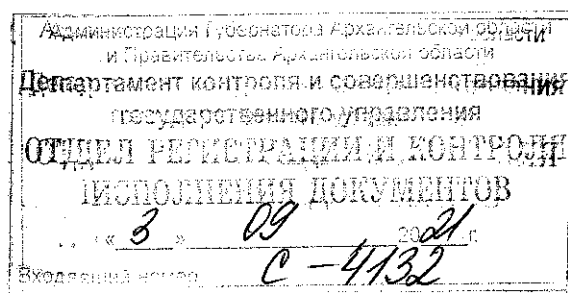 Администрации Губернатора Архангельской области
и Правительства Архангельской области
Департамент контроля и совершенствования
государственного управления
ОТДЕЛ РЕГИСТРАЦИИ И КОНТРОЛЯ
ИСПОЛНЕНИЯ ДОКУМЕНТОВ
« 3 » 09 2021 г.
Входящий номер С - 4132